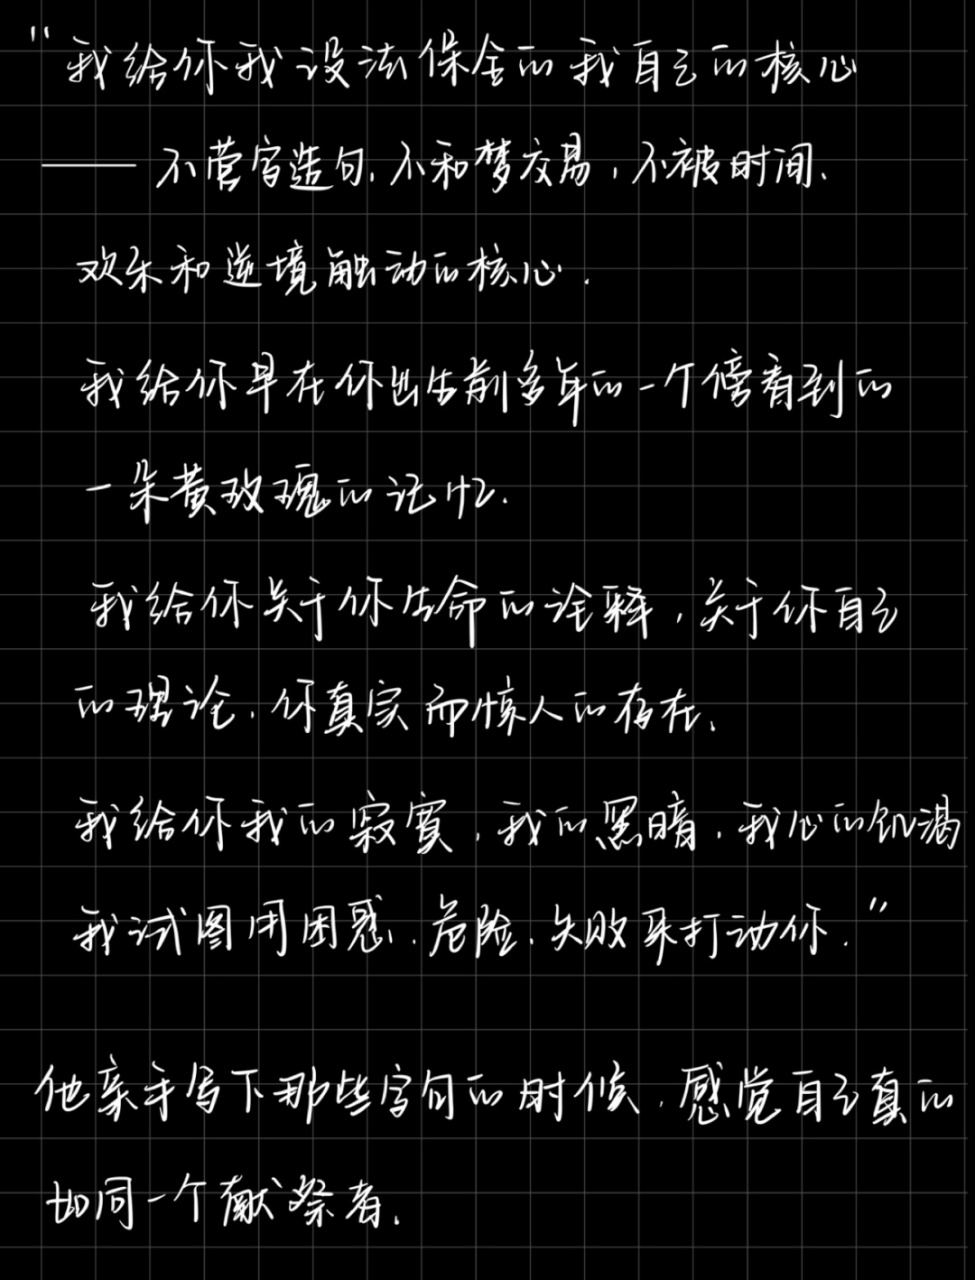 “我给你我设法保全的我自己的核心
——不营字造句，不和梦交易，不被时间、
欢乐和逆境触动的核心．
我给你早在你出生前多年的一个傍看到的
一朵黄玫瑰的记忆．
我给你关于你生命的诠释，关于你自己
的理论，你真实而惊人的存在．
我给你我的寂寞，我的黑暗，我心的饥渴
我试图用困惑、危险、失败来打动你．”
他亲手写下那些字句的时候，感觉自己真的
如同一个献祭者．